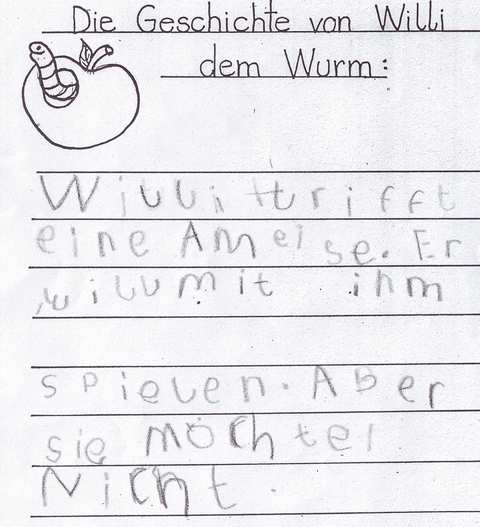 Die Geschichte von Willi
dem Wurm:
Willi trifft
eine Ameise. Er
will mit ihm
spielen. Aber
sie möchte
Nicht.